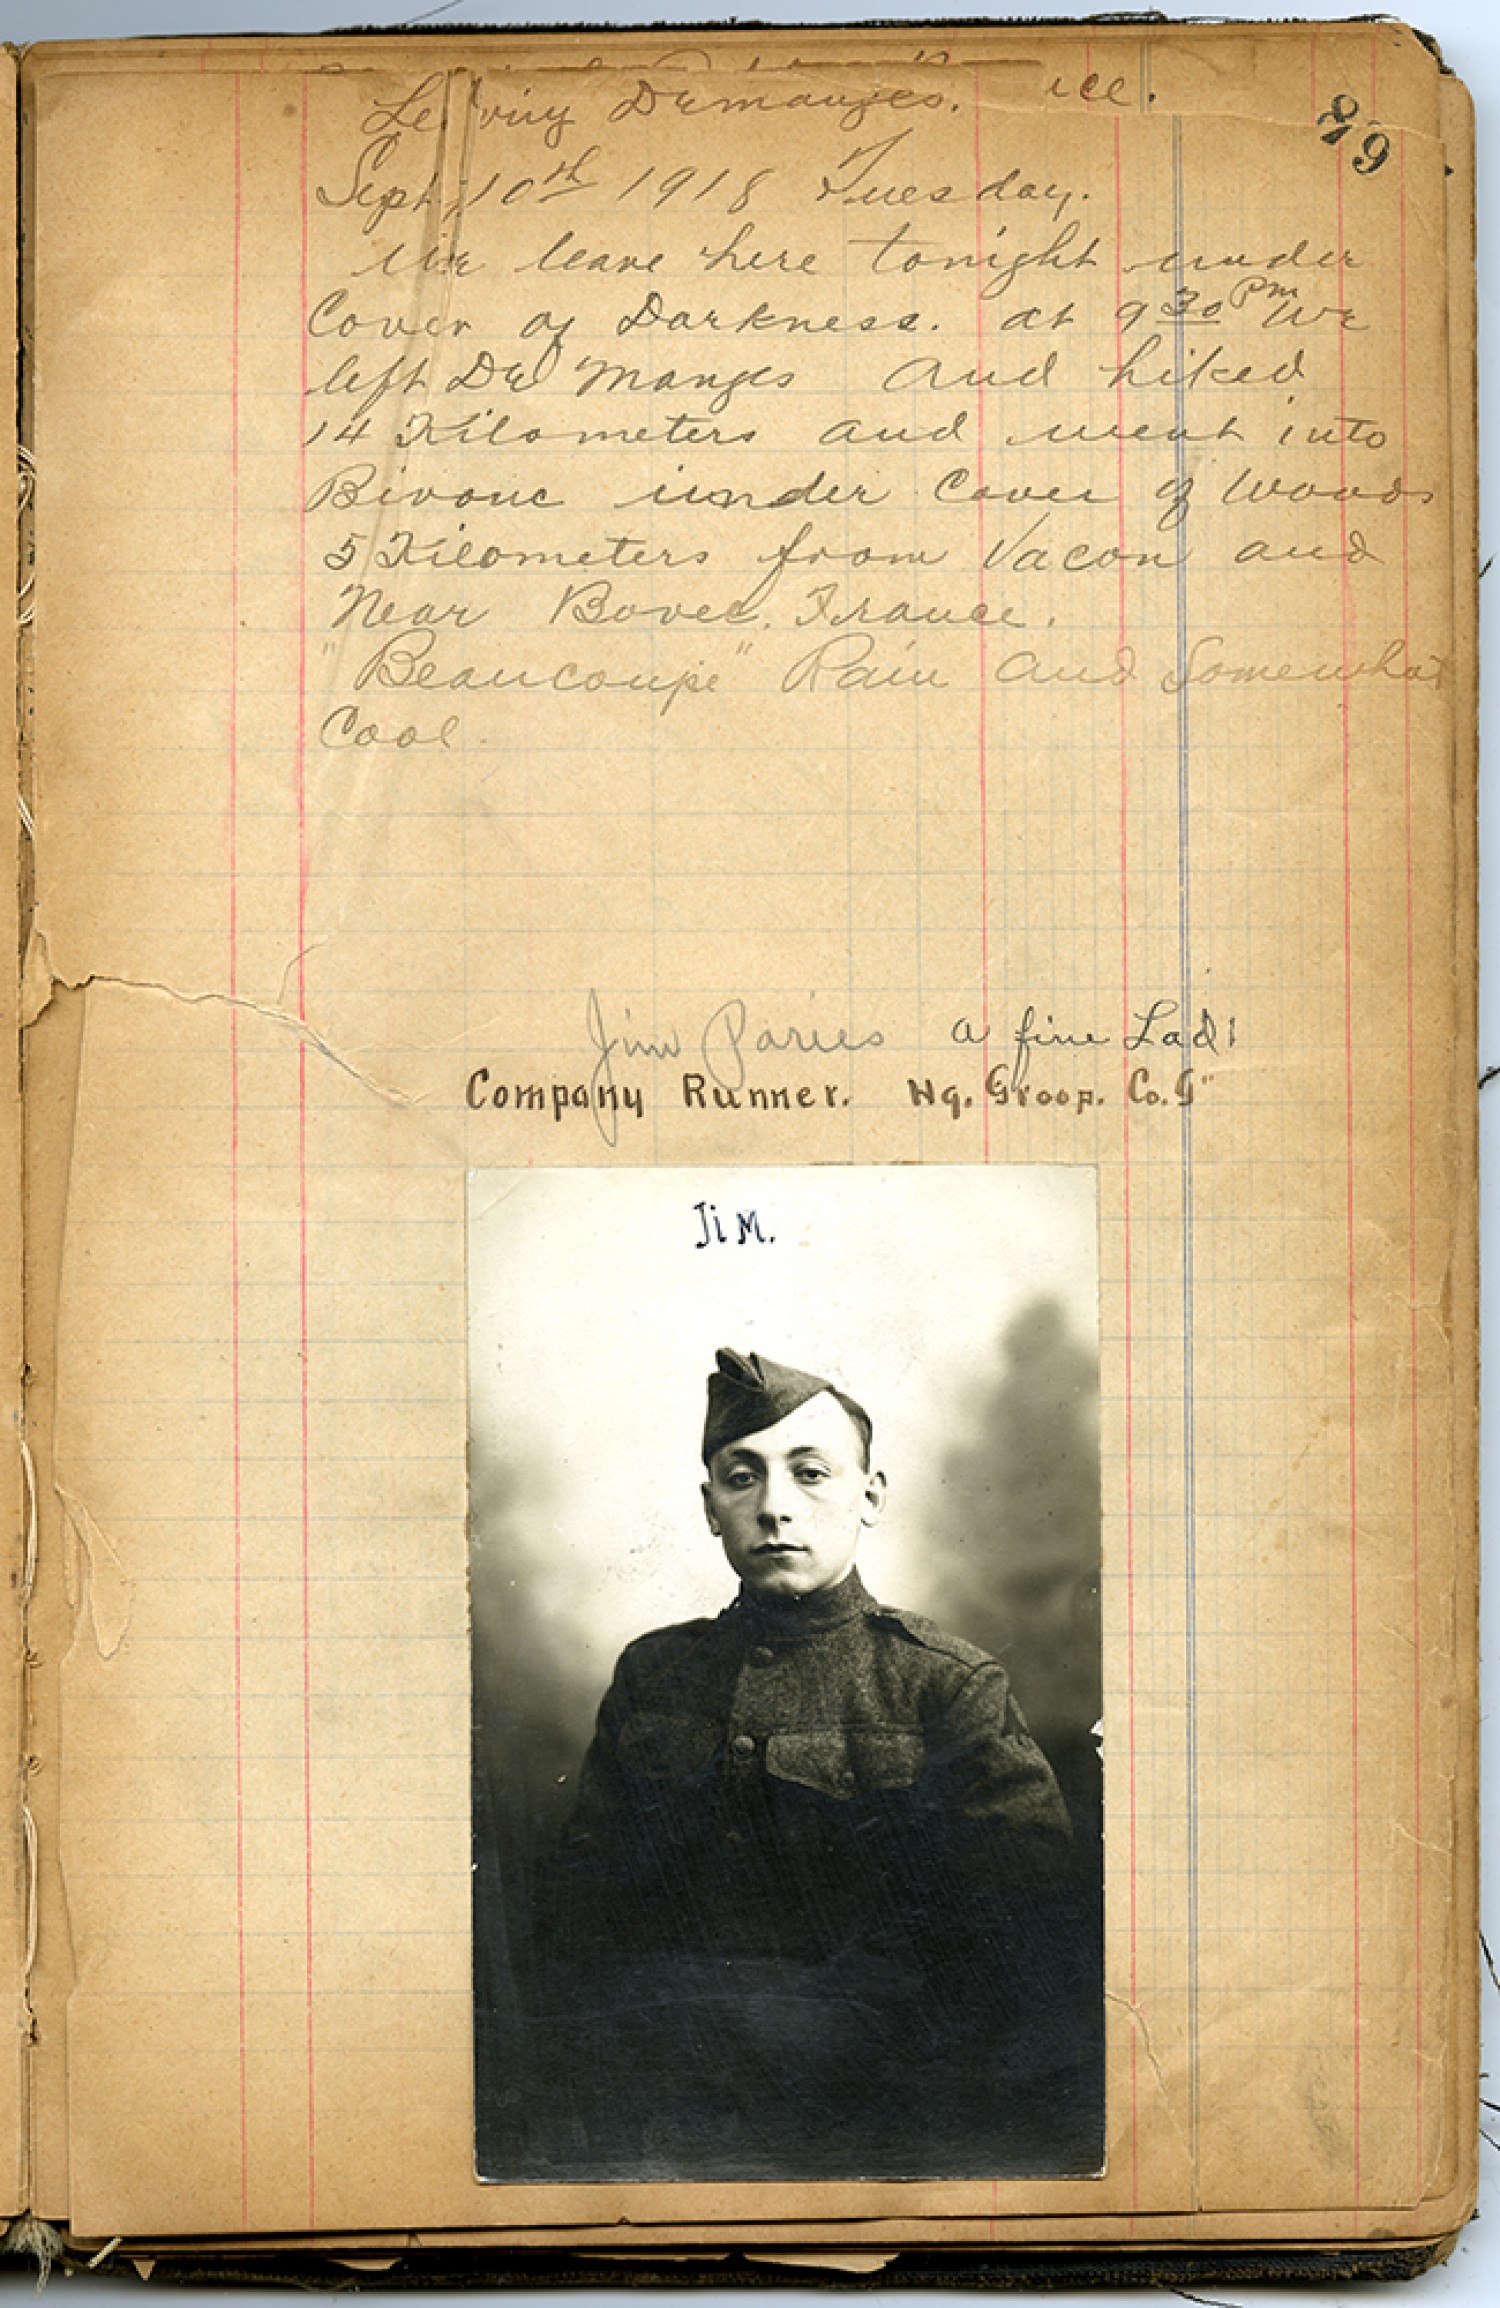 Demanges.
279
Sept, 10th 1918 Tuesday.
We leave here tonight under
Cover of Darkness. at 9 30 Pm We
left De Manges and hiked
14 Kilometers and went into
Bivouc under Cover of Woods
5 Kilometers from Vacon and
Near Bovee, France.
"Beaucoupe" Rain and Somewhat
Cool.
Jim Paries a fine Lad!
Company Runner. Hq. Groop. Co. G"
JiM.